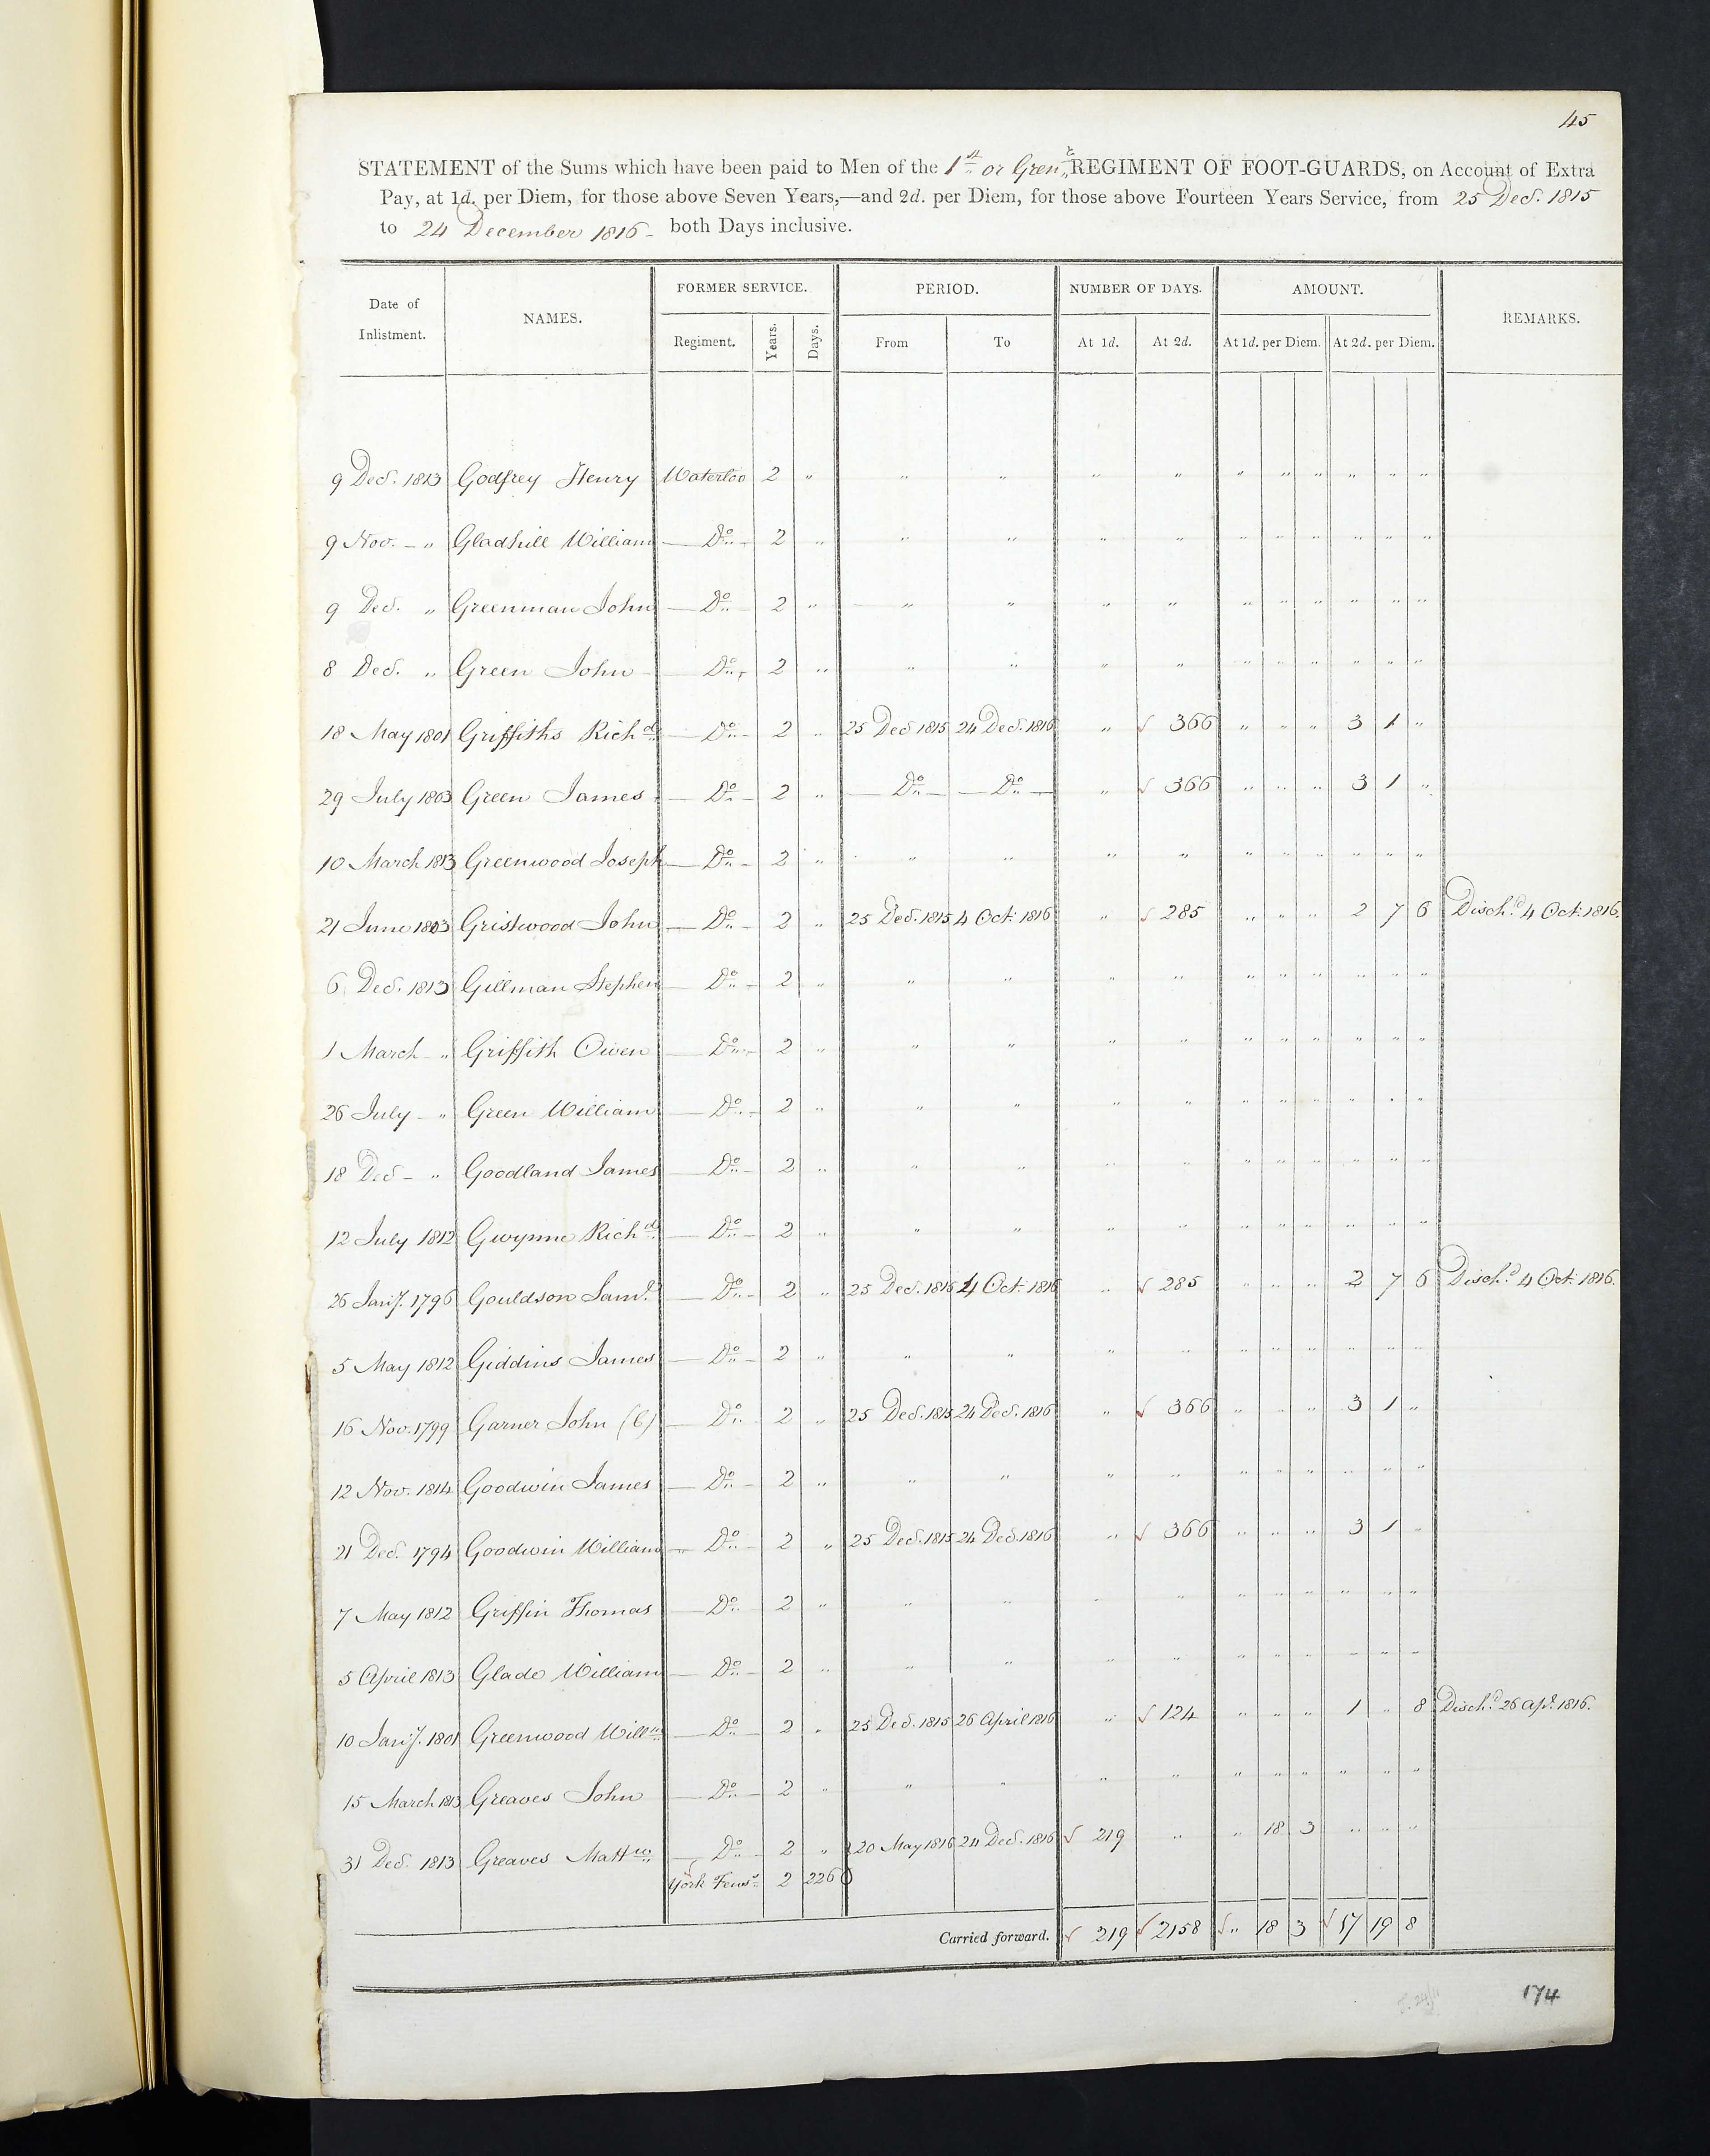 45
STATEMENT of the Sums which have been paid to Men of the 1st or Gren.r REGIMENT OF FOOT-GUARDS, on Account of Extra
Pay, at 1d. per Diem, for those above Seven Years,—and 2d. per Diem, for those above Fourteen Years Service, from 25 Dec. 1815
to 24 December 1816 - both Days inclusive.
Date of Inlistment. NAMES. FORMER SERVICE. PERIOD. NUMBER OF DAYS. AMOUNT. REMARKS.
Regiment. Years. Days. From To At 1d. At 2d. At 1d. per Diem. At 2d. per Diem.
9 Dec. 1813 Godfrey Henry Waterloo 2 " " " " " " " " " " "
9 Nov. - " Gladhill William — Do - 2 " " " " " " " " " " "
9 Dec. " Greenman John — Do - 2 " " " " " " " " " " "
8 Dec. " Green John — Do - 2 " " " " " " " " " " "
18 May 1801 Griffiths Richd — Do - 2 " 25 Dec 1815 24 Dec. 1816 " √ 366 " " " 3 1 "
29 July 1803 Green James — Do - 2 " — Do — — Do — " √ 366 " " " 3 1 "
10 March 1813 Greenwood Joseph — Do - 2 " " " " " " " " " " "
21 June 1803 Gristwood John — Do - 2 " 25 Dec. 1815 4 Oct: 1816 " √ 285 " " " 2 7 6 Dischd 4 Oct: 1816.
6 Dec. 1813 Gillman Stephen — Do - 2 " " " " " " " " " " "
1 March - " Griffith Owen — Do - 2 " " " " " " " " " " "
26 July - " Green William — Do - 2 " " " " " " " " " " "
18 Dec - " Goodland James — Do - 2 " " " " " " " " " " "
12 July 1812 Gwynne Richd — Do - 2 " " " " " " " " " " "
26 Jany. 1796 Gouldson Saml — Do - 2 " 25 Dec. 1815 4 Oct: 1816 " √ 285 " " " 2 7 6 Dischd 4 Oct: 1816.
5 May 1812 Giddins James — Do - 2 " " " " " " " " " " "
16 Nov. 1799 Garner John (C) — Do - 2 " 25 Dec. 1815 24 Dec. 1816 " √ 366 " " " 3 1 "
12 Nov. 1814 Goodwin James — Do - 2 " " " " " " " " " " "
21 Dec. 1794 Goodwin William — Do - 2 " 25 Dec. 1815 24 Dec. 1816 " √ 366 " " " 3 1 "
7 May 1812 Griffin Thomas — Do - 2 " " " " " " " " " " "
5 April 1813 Glade William — Do - 2 " " " " " " " " " " "
10 Jany. 1801 Greenwood Willm — Do - 2 " 25 Dec. 1815 26 April 1816 " √ 124 " " " 1 " 8 Dischd 26 Apl. 1816.
15 March 1813 Greaves John — Do - 2 " " " " " " " " " " "
31 Dec. 1813 Greaves Mattw — Do - 2 " 20 May 1816 24 Dec. 1816 √ 219 " " 18 3 " " "
York 2 226
Carried forward. √ 219 √ 2158 √ " 18 3 √ 17 19 8
174